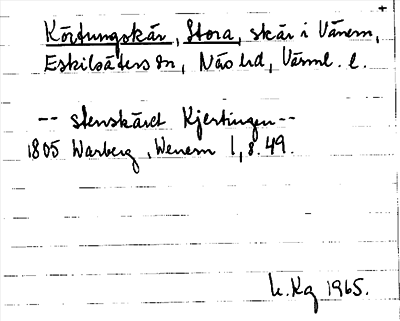 Körtungskär, Stora, skär i Vänern,
Eskilsäters sn, Näs hd, Värml. l.
-- stenskäret Kjertingen --
1805 Warberg, Wenern 1, s. 49.
K.Kg 1965.